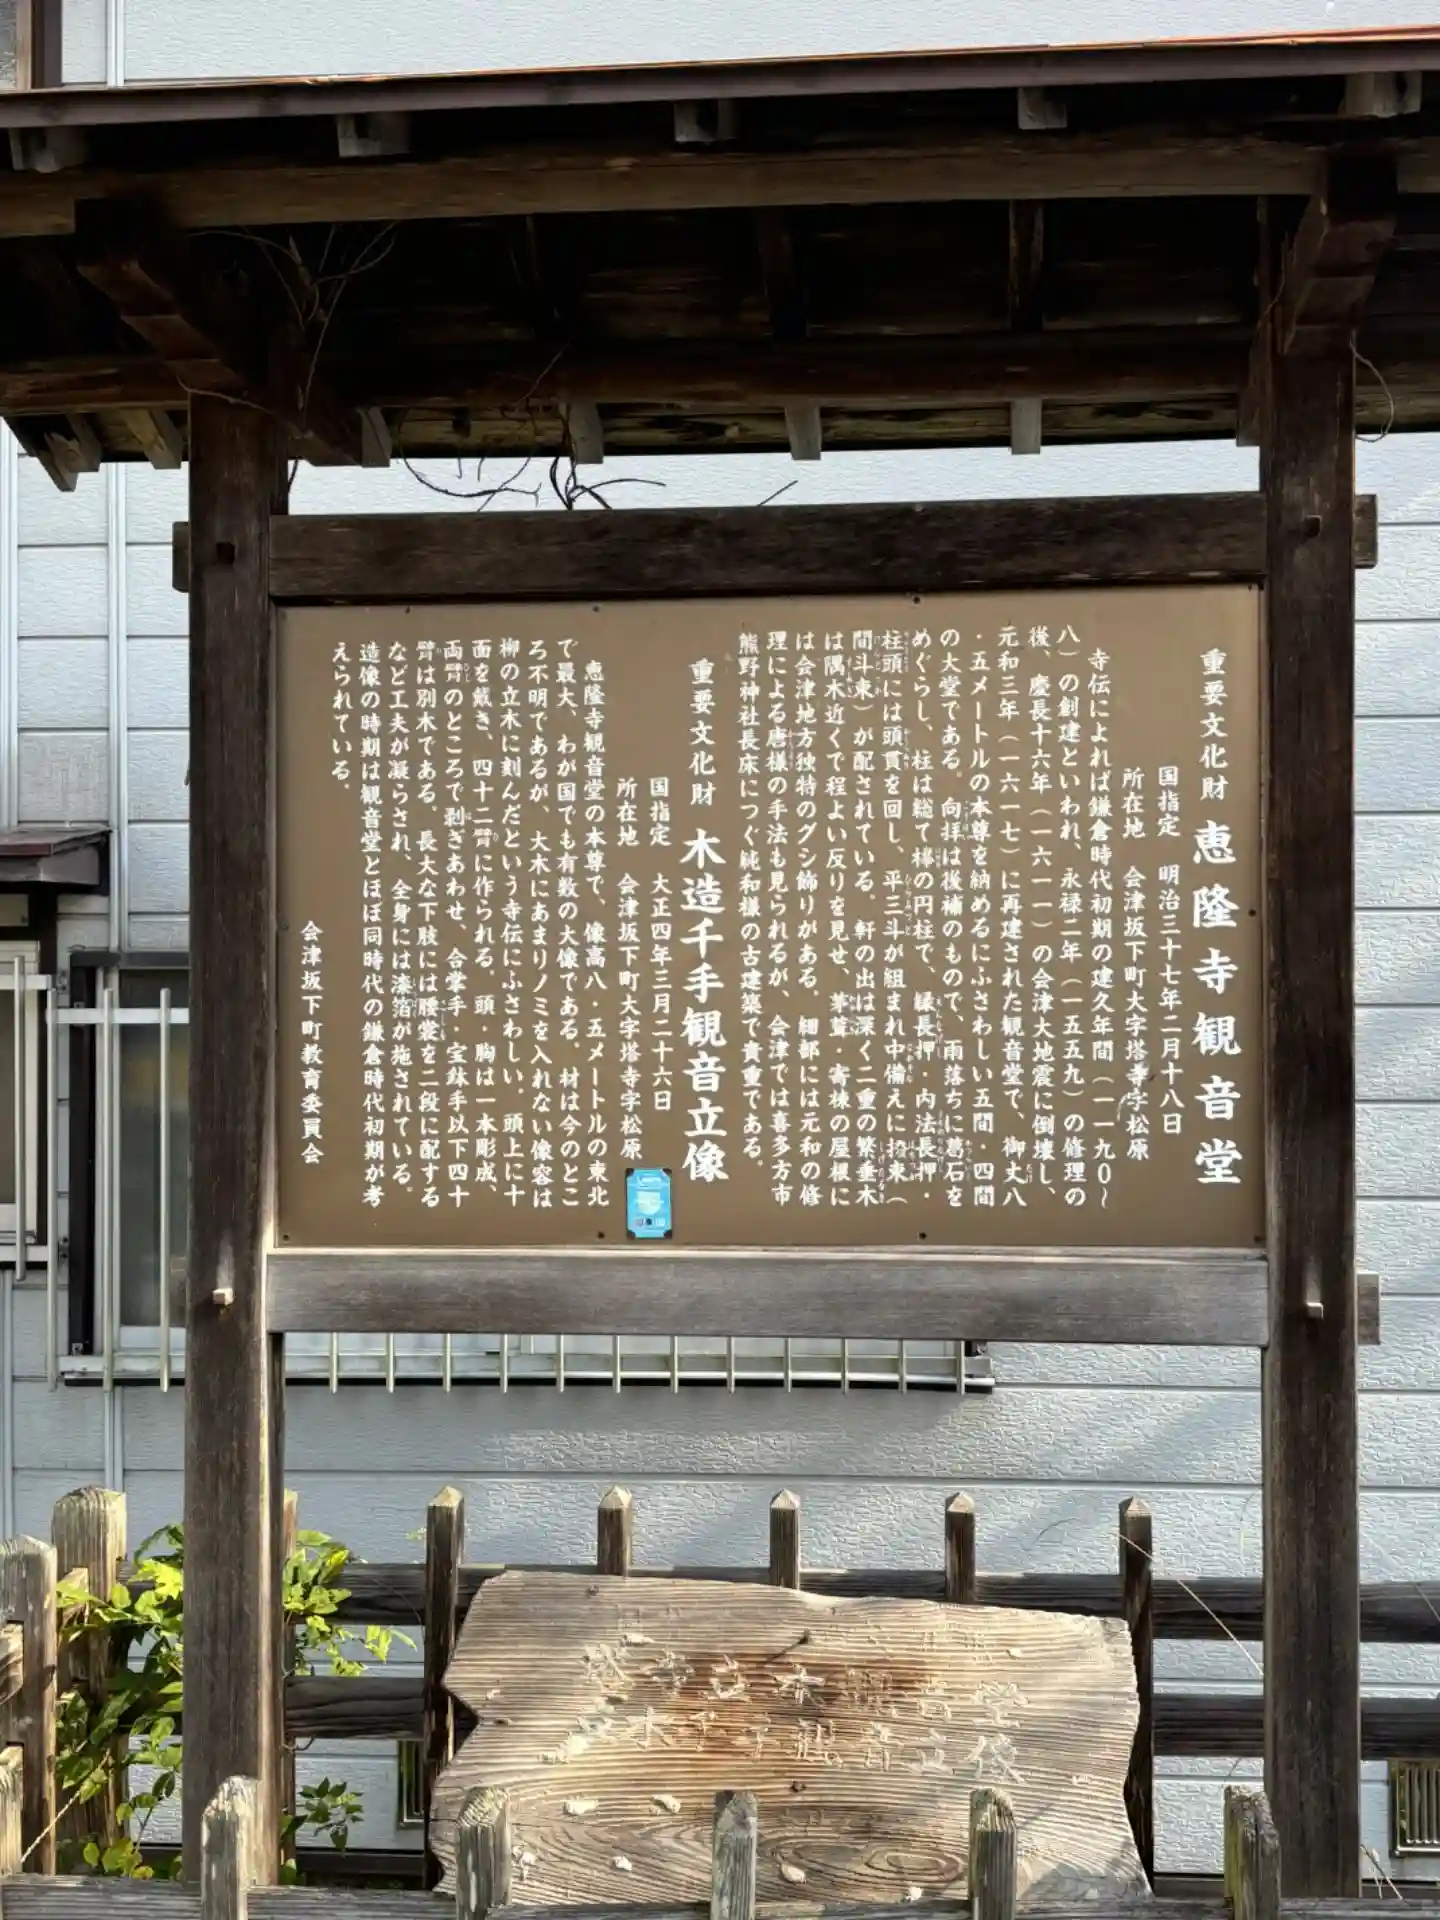 重要文化財 恵隆寺観音堂
国指定 明治三十七年二月十八日
所在地 会津坂下町大字塔寺字松原
寺伝によれば鎌倉時代初期の建久年間(一一九〇〜
八)の創建といわれ、永禄二年(一五五九)の修理の
後、慶長十六年(一六一一)の会津大地震に倒壊し、
元和三年(一六一七)に再建された観音堂で、御丈八
・五メートルの本尊を納めるにふさわしい五間・四間
の大堂である。向拝は後補のもので、雨落ちに葛石を
めぐらし、柱は総て欅の円柱で、縁長押・内法長押・
柱頭には頭貫を回し、平三斗が組まれ中備えに撥束(
間斗束)が配されている。軒の出は深く二重の繁垂木
は隅木近くで程よい反りを見せ、茅葺・寄棟の屋根に
は会津地方独特のグシ飾りがある。細部には元和の修
理による唐様の手法も見られるが、会津では喜多方市
熊野神社長床につぐ純和様の古建築で貴重である。
重要文化財 木造千手観音立像
国指定 大正四年三月二十六日
所在地 会津坂下町大字塔寺字松原
恵隆寺観音堂の本尊で、像高八・五メートルの東北
で最大、わが国でも有数の大像である。材は今のとこ
ろ不明であるが、大木にあまりノミを入れない像容は
柳の立木に刻んだという寺伝にふさわしい。頭上に十
面を戴き、四十二臂に作られる。頭・胸は一木彫成、
両臂のところで剥ぎあわせ、合掌手・宝鉢手以下四十
臂は別木である。長大な下肢には腰裳を二段に配する
など工夫が凝らされ、全身には漆箔が施されている。
造像の時期は観音堂とほぼ同時代の鎌倉時代初期が考
えられている。
会津坂下町教育委員会
塔寺立木観音堂
立木千手観音立像